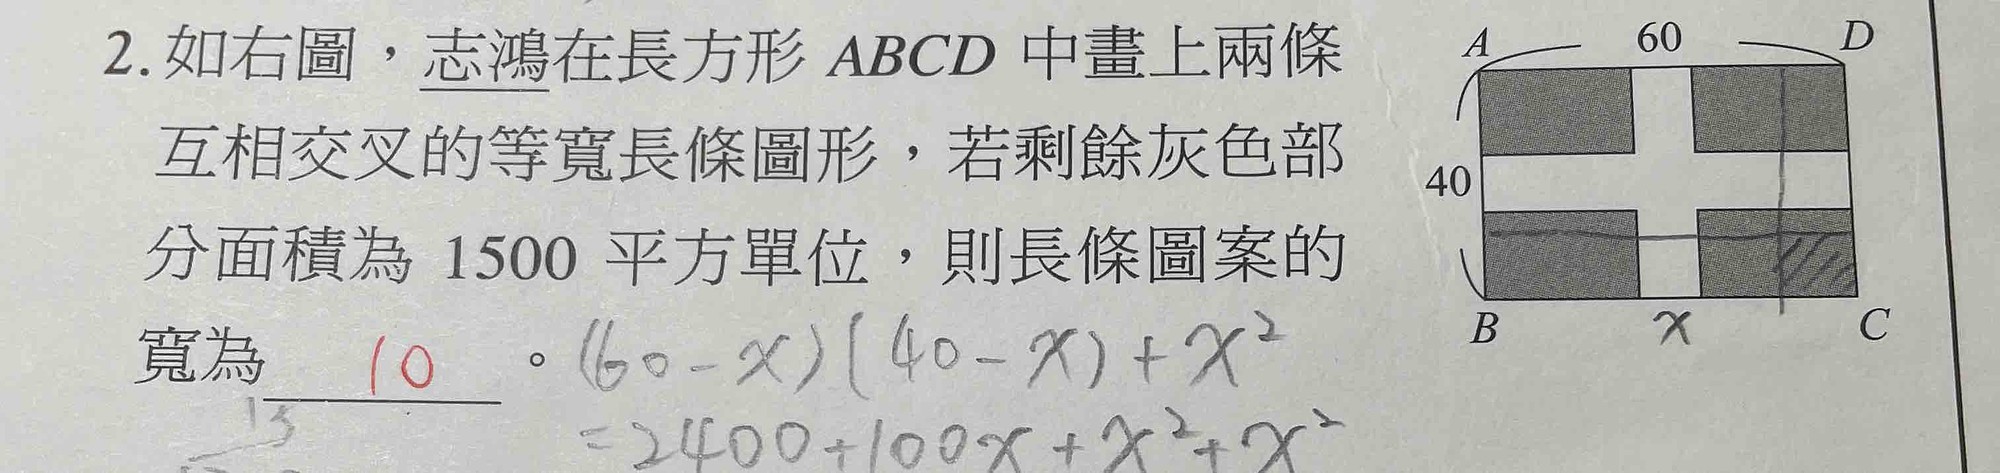 2.如右圖，志鴻在長方形 ABCD 中畫上兩條
互相交叉的等寬長條圖形，若剩餘灰色部
分面積為 1500 平方單位，則長條圖案的
寬為 10 。
(60-x)(40-x)+x²
=2400+100x+x²+x²
13
A 60 D
40
B x C